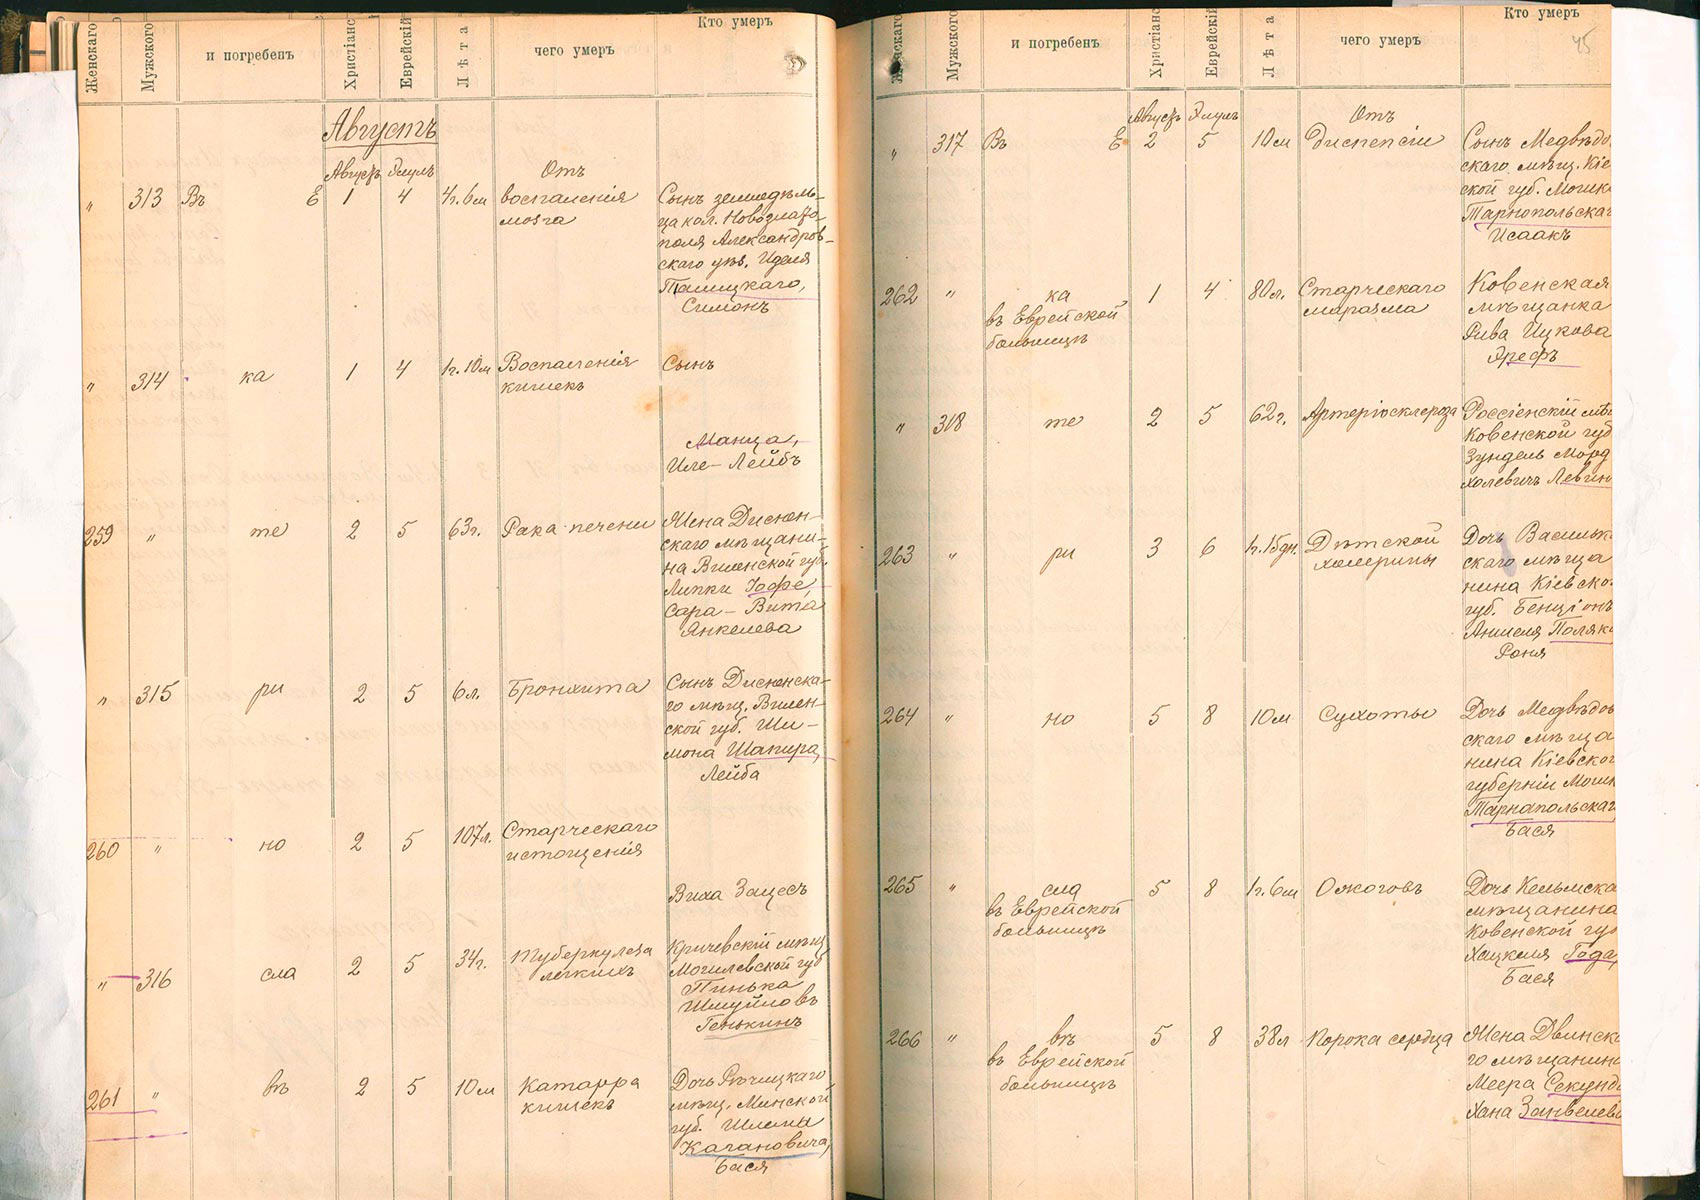 Женскаго
Мужского
и погребенъ
Христіанс
Еврейскій
Лѣта
чего умеръ
Кто умеръ
Августъ
Августъ Элулъ
Отъ
" 313 Въ Е 1 4 4г. 6м воспаленія
мозга
Сынъ земледѣль-
ца кол. Новозлато-
поля Александров-
скаго уѣз. Иделя
Талицкаго,
Симонъ
" 314 ка 1 4 1г. 10м Воспаленія
кишекъ
Сынъ
Манца,
Иле-Лейбъ
259 " те 2 5 63г. Рака печени
Жена Диснен-
скаго мѣщани-
на Виленской губ.
Липки Іофе,
Сара-Вита
Янкелева
" 315 ри 2 5 6л. Бронхита
Сынъ Дисненска-
го мѣщ. Вилен-
ской губ. Ши-
мона Шапира,
Лейба
260 " но 2 5 107л. Старческаго
истощенія
Виха Зацесъ
" 316 сла 2 5 34г. Туберкулеза
легкихъ
Кричевскій мѣщ.
Могилевской губ
Пинька
Шмуйловъ
Генькинъ
261 " въ 2 5 10м Катарра
кишекъ
Дочь Рѣчицкаго
мѣщ. Минской
губ. Шлемы
Кагановича,
Бася
Женскаго
Мужского
и погребенъ
Христіанс
Еврейскій
Лѣта
чего умеръ
Кто умеръ
45
Августъ Элулъ
Отъ
" 317 Въ Е 2 5 10м Диспепсіи
Сынъ Медвѣдо
скаго мѣщ. Кіе
ской губ. Мошк
Тарнопольскаг
Исаакъ
262 " ка 1 4 80л. Старческаго
въ Еврейской маразма
больницѣ
Ковенская
мѣщанка
Рива Ицкова
Арефъ
" 318 те 2 5 62г. Артеріосклероза
Россіенскій мѣщ
Ковенской губ
Зундель Морд
холевичъ Левин
263 " ри 3 6 1г. 15дн. Дѣтской
холерины
Дочь Васильк
скаго мѣща
нина Кіевско
губ. Бенціонъ
Аншеля Поляк
Роня
264 " но 5 8 10м Сухоты
Дочь Медвѣдов
скаго мѣща
нина Кіевског
губерніи Мошк
Тарнапольскаг
Бася
265 " сла 5 8 1г. 6м Ожоговъ
въ Еврейской
больницѣ
Дочь Кельмска
мѣщанина
Ковенской губ
Хацкеля Года,
Бася
266 " въ 5 8 38л Порока сердца
въ Еврейской
больницѣ
Жена Двинска
го мѣщанина
Меера Секунд
Хана Занвелева